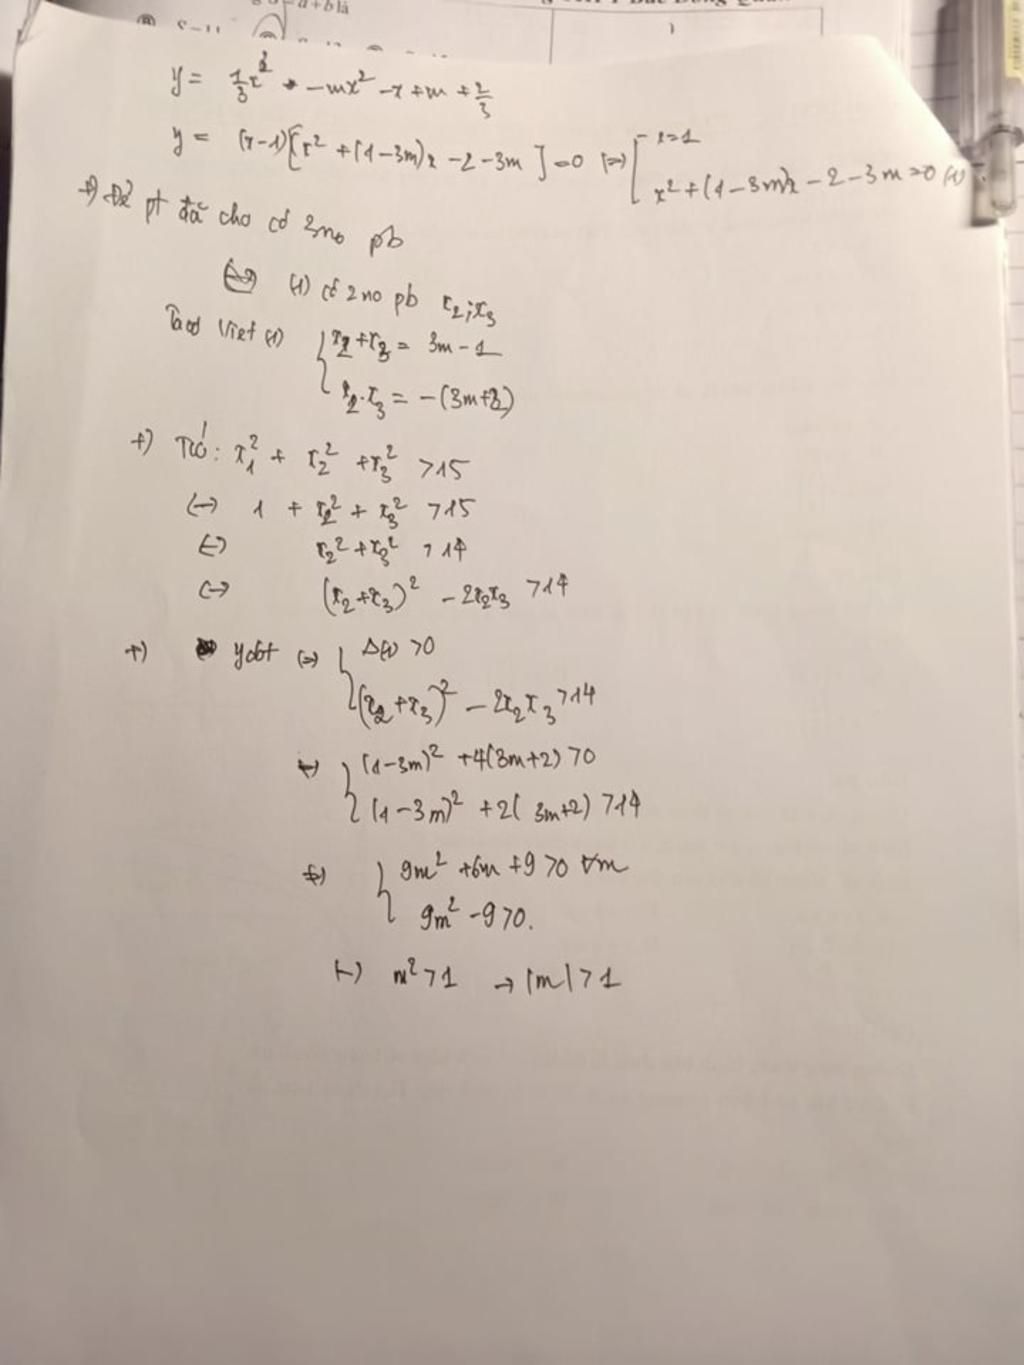 a+b là
y = 1/3 x³ - mx² - x + m + 2/3
y = (x-1)[x² + (1-3m)x - 2 - 3m] = 0 (=) [ x=1
x² + (1-3m)x - 2 - 3m = 0 (1)
+) Để pt đã cho có 3 no pb
(=) (1) có 2 no pb x₂; x₃
Theo Viet (1) { x₂ + x₃ = 3m - 1
x₂.x₃ = -(3m+2)
+) Từ: x₁² + x₂² + x₃² > 15
(=) 1 + x₂² + x₃² > 15
(=) x₂² + x₃² > 14
(=) (x₂+x₃)² - 2x₂x₃ > 14
+) ycbt (=) { Δ(1) > 0
(x₂+x₃)² - 2x₂x₃ > 14
(=) { (1-3m)² + 4(3m+2) > 0
(1-3m)² + 2(3m+2) > 14
(=) { 9m² + 6m + 9 > 0 ∀m
9m² - 9 > 0.
(=) m² > 1 → |m| > 1